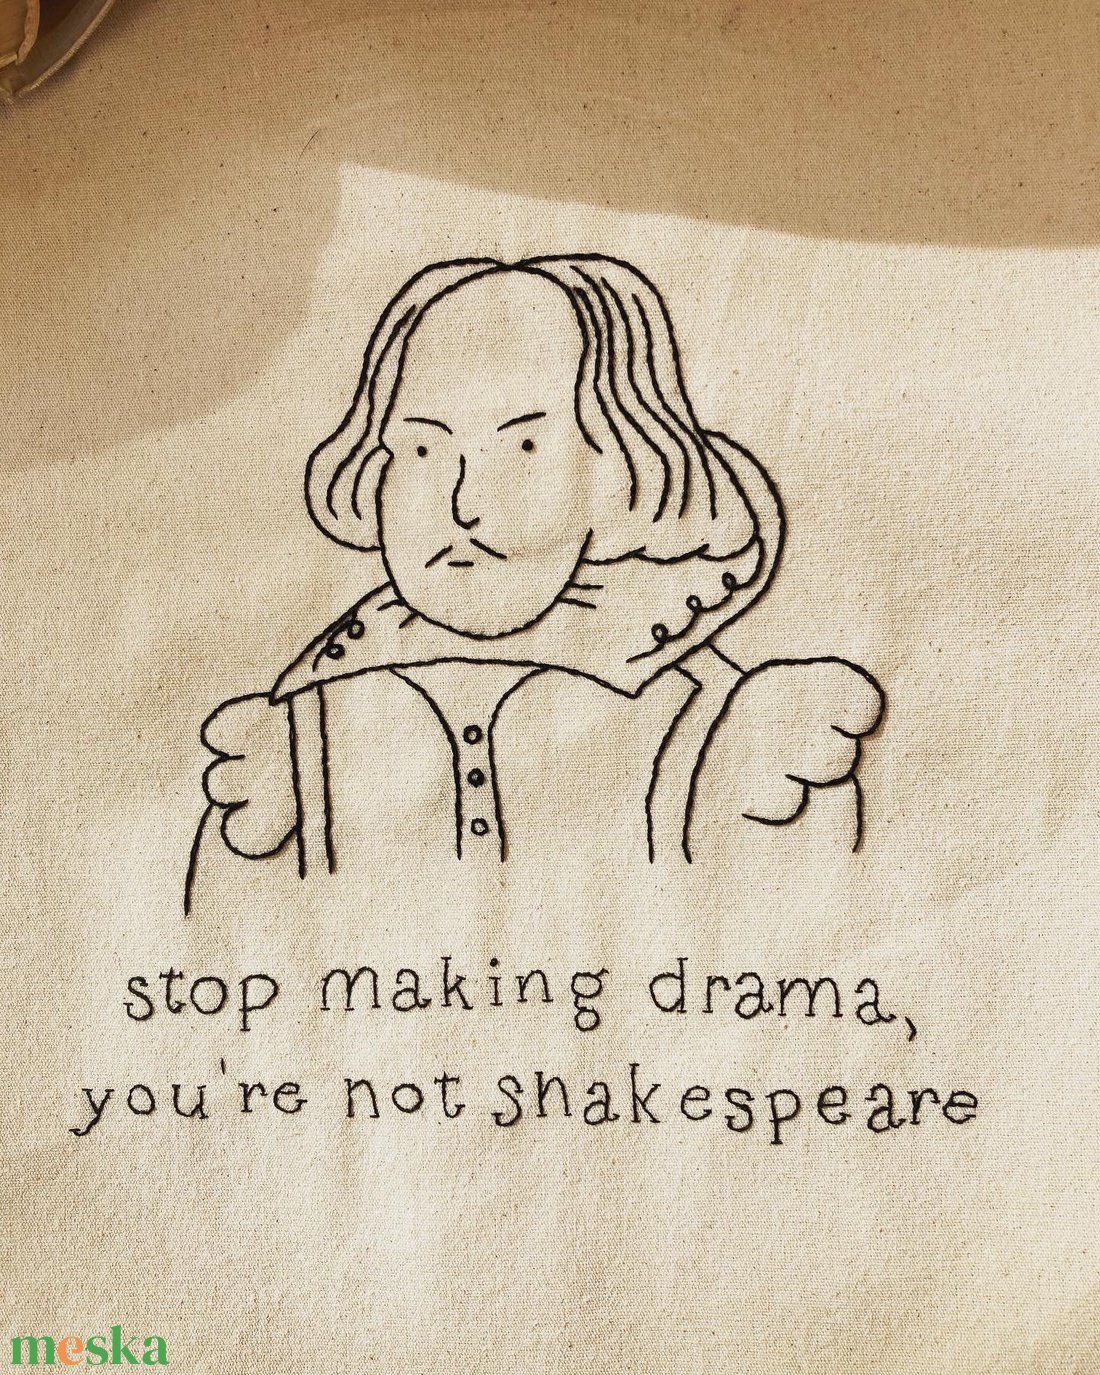 stop making drama,
you're not shakespeare
meska